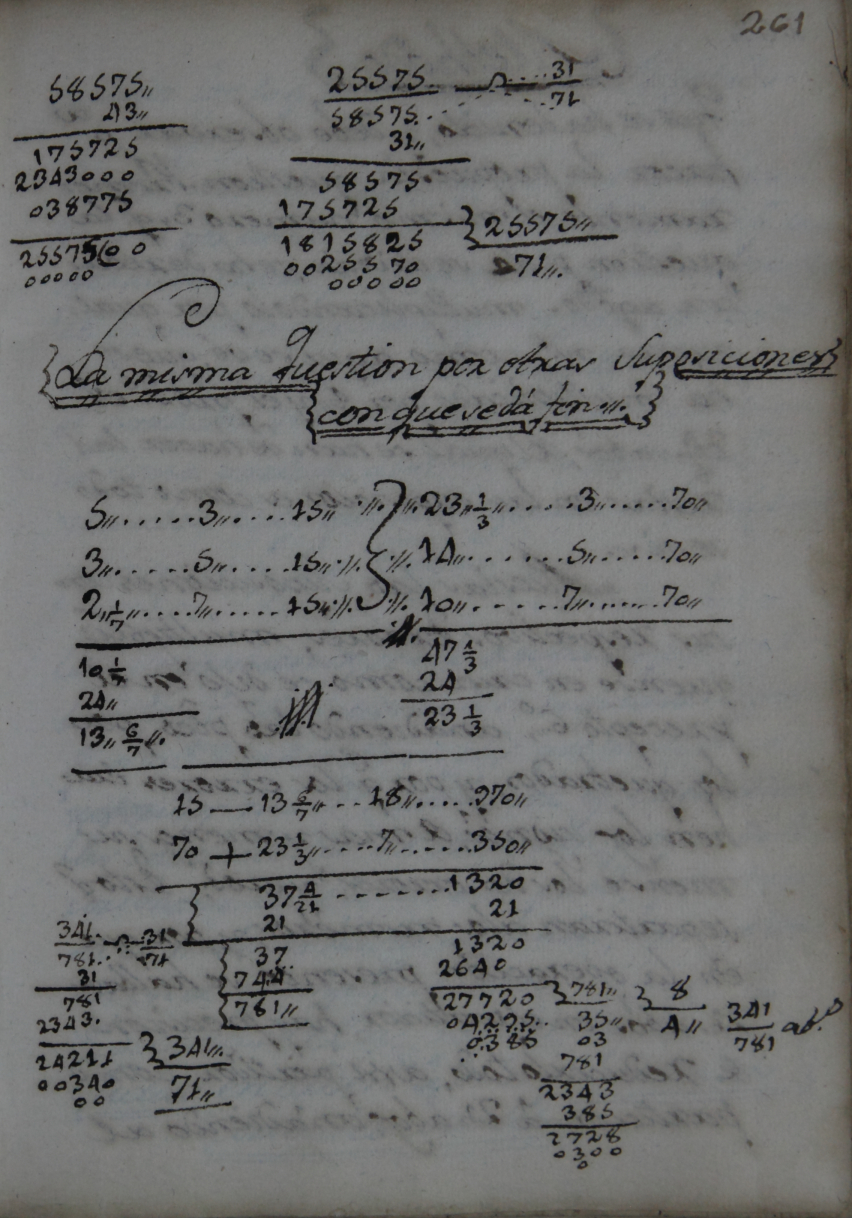 261
58575,,
43,,
175725
2343000
038775
25575(0 0
00000
25575. .... 31
58575. .... 71
31,,
58575
175725
1815825 } 25575,,
0025570 71,,
00000
{La misma question por otras Suposiciones}
{con que se dá fin,,.}
5,,.....3,,....15,, 23,,1/3,,.....3......70,,
3,,.....5......15,, 14......5,,.....70,,
2,,1/7,,....7,,.....15,, 10,,.....7,,......70,,
10 1/7 47 1/3
24,, 24
13,, 6/7,,. 23 1/3
15 — 13 6/7,,...18,,.....970,,
70 + 23 1/3,,....7,,......350,,
37 4/21 ........1320
21 21
37 1320
744 2640
781,, 27720 } 781,, } 8 341
04295 35,, 4,, 781
0385 03
781
2343
385
2728
0300
0
341. 31
781. 71
31
781
2343.
24211 } 341,,
00340 71,,
00